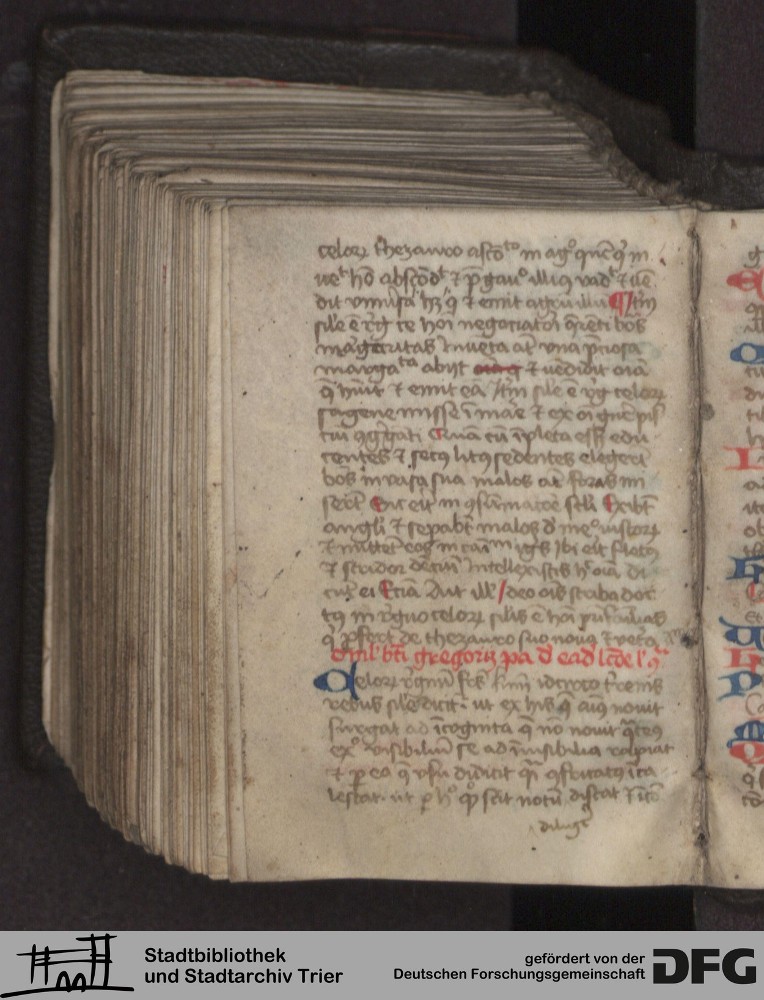 celorum thezauro ascondito in agro quem qui in
venit homo abscondit et pre gaudio illius vadit et ven
dit universa que habet et emit agrum illum Iterum
simile est regnum celorum homini negociatori querenti bonas
margaritas Inventa autem una preciosa
margarita abiit et vendidit omnia
que habuit et emit eam Iterum simile est regnum celorum
sagene misse in mare et ex omni genere pis
cium congreganti Quam cum impleta esset edu
centes et secus litus sedentes elegerunt
bonos in vasa sua malos autem foras mi
serunt Sic erit in consummacione seculi Exibunt
angeli et separabunt malos de medio iustorum
et mittent eos in caminum ignis Ibi erit fletus
et stridor dencium Intellexistis hec omnia di
cunt ei Eciam Ait illis Ideo omnis scriba doc
tus in regno celorum similis est homini patri familias
qui profert de thezauro suo nova et vetera
Omelia beati gregorii pape de eadem
Celorum regnum fratres karissimi idcirco terrenis
rebus simile dicitur ut ex his que animus novit
surgat ad incognita que non novit quatenus
exemplo visibilium se ad invisibilia rapiat
et per ea que usu didicit quasi confricatus inca
lescat ut per hoc quod scit notum diligere discat et
Stadtbibliothek
und Stadtarchiv Trier
gefördert von der
Deutschen Forschungsgemeinschaft
DFG